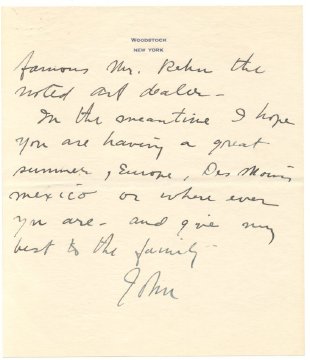 WOODSTOCK
NEW YORK
famous Mr. Rehn the
noted art dealer -
In the meantime I hope
you are having a great
summer, Europe, Des Moines
mexico or where ever
you are - and give my
best to the family -
John